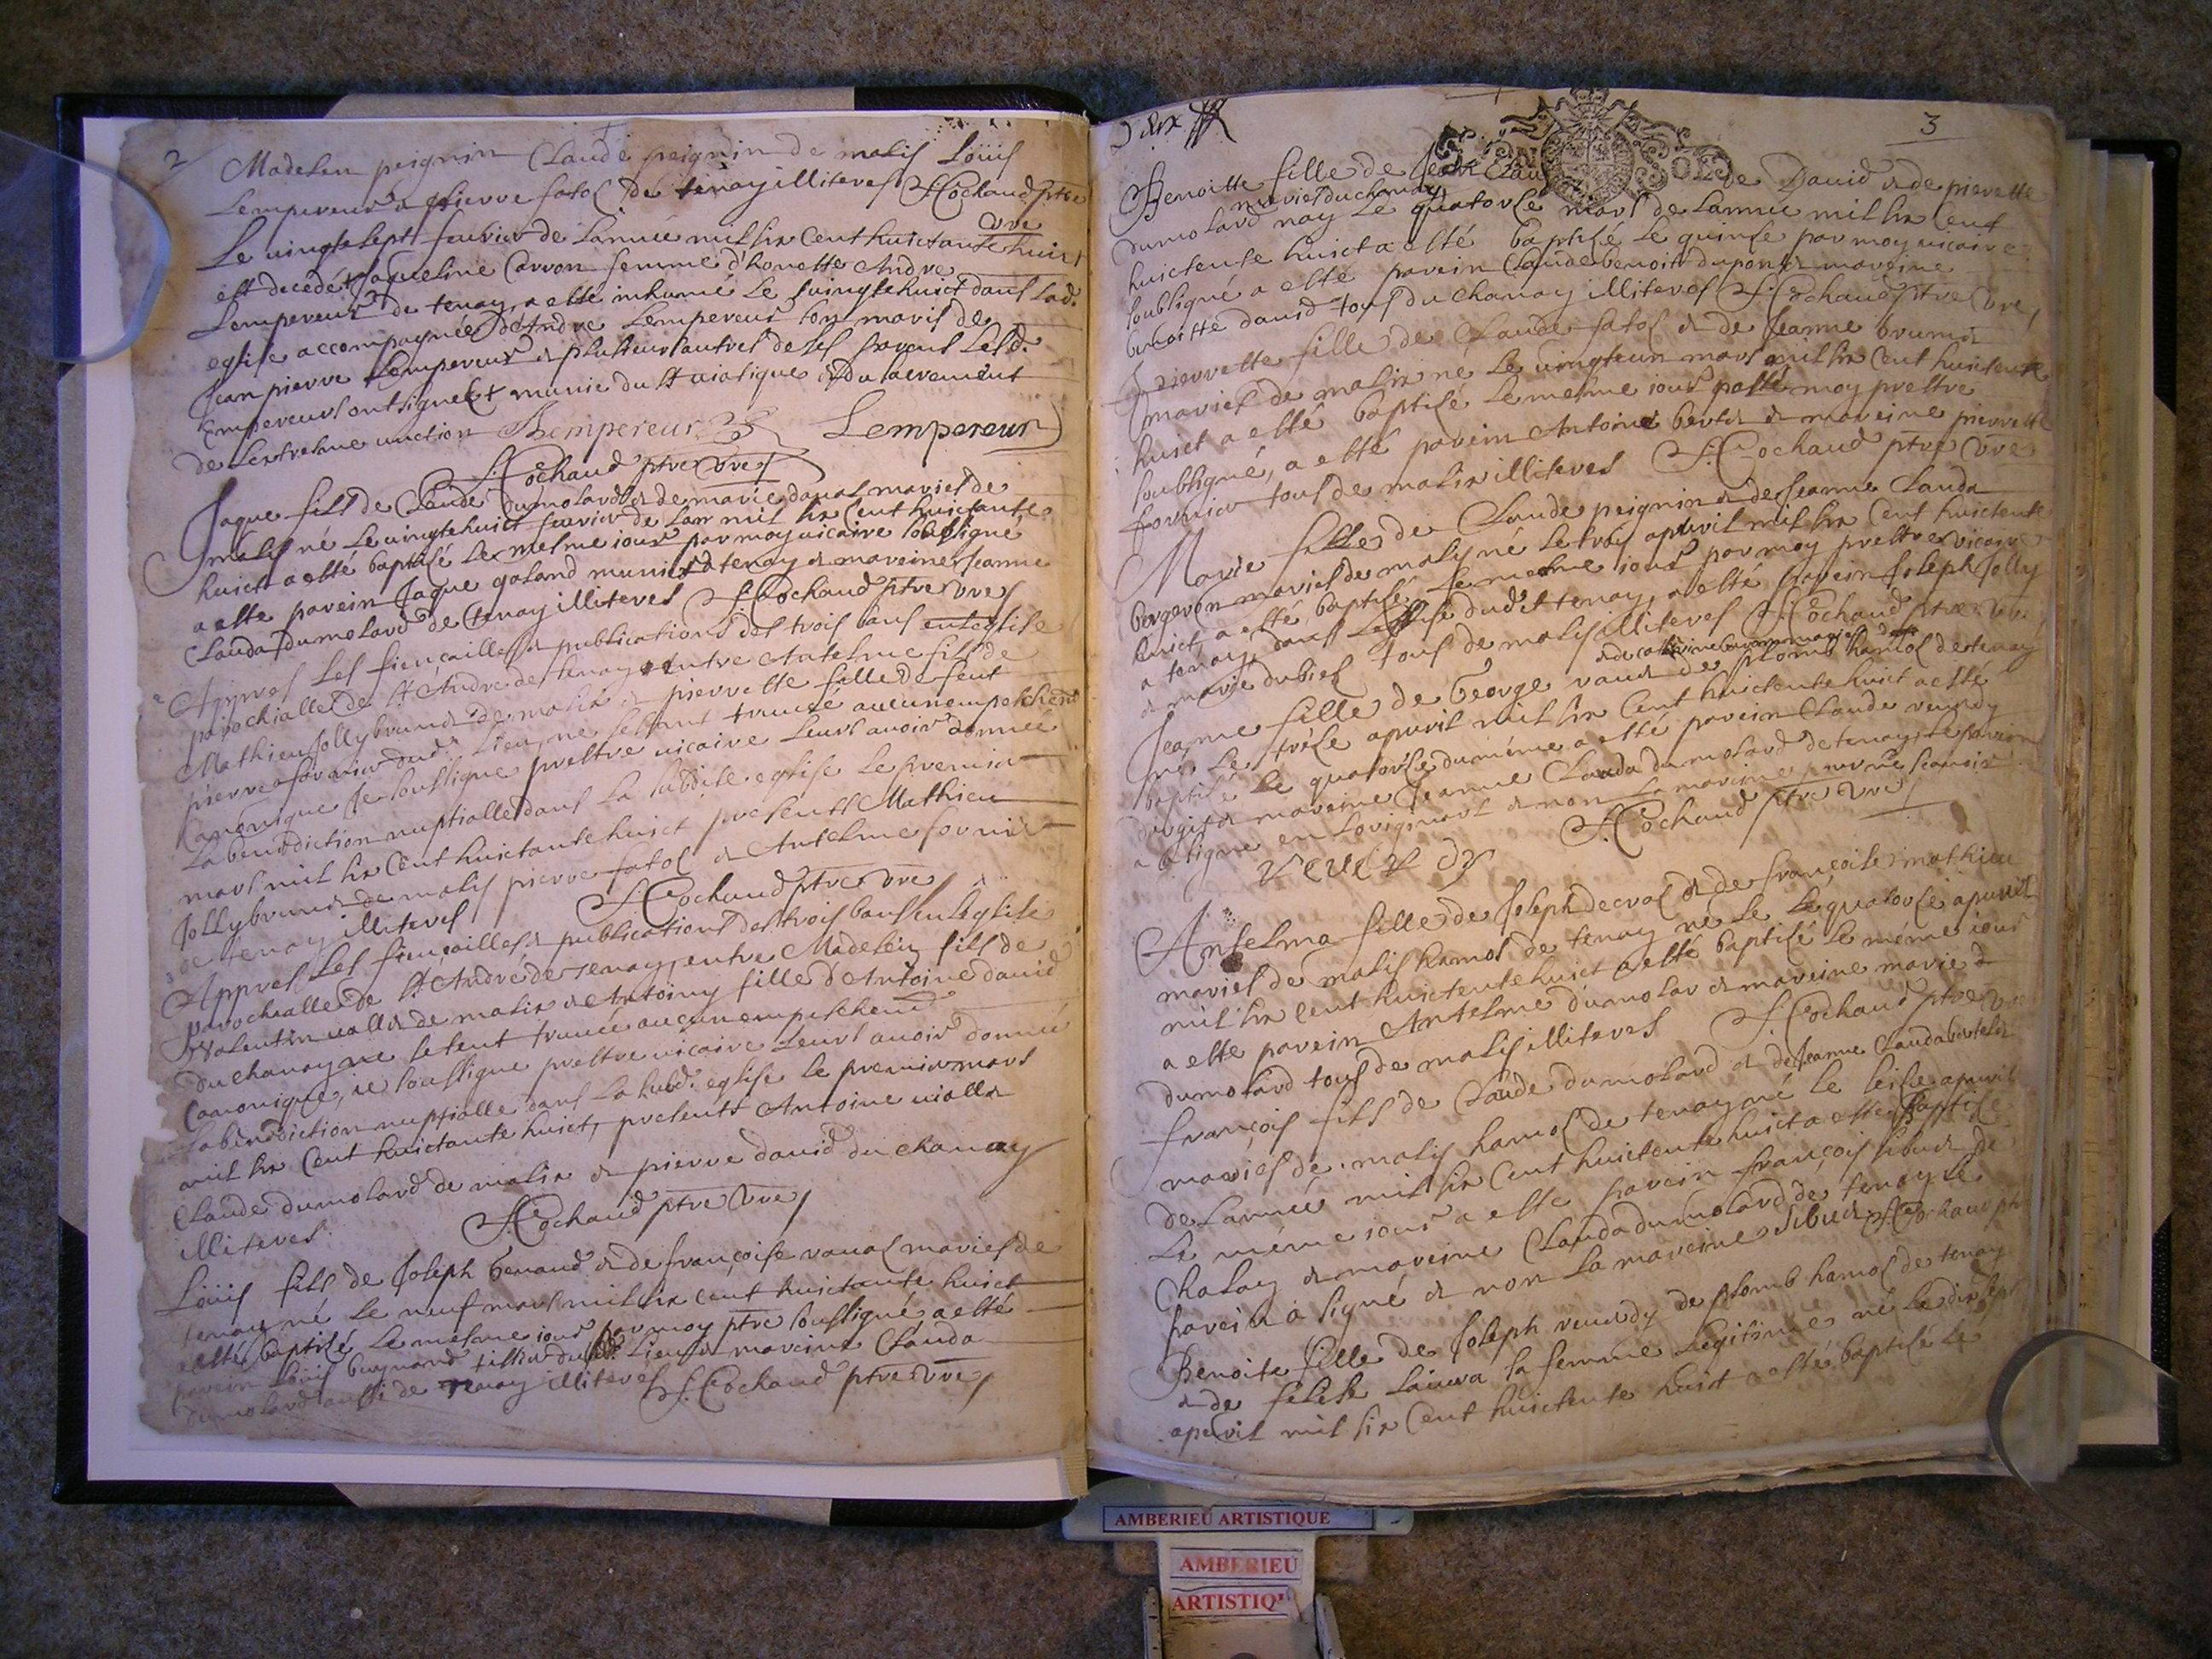 2
Madelen peignin Claude peignin de malis Loüis
Lempereur & pierre fatol de tenay illiteres J Cochaud ptre
vre
Le vingtesept feuvrier de Lannee mil six Cent huictante huict
est decedé Jaqueline Carron femme d'honeste Andre
Lempereur de tenay, a esté inhumé Le vingtehuict dans Lad.
eglise accompagnée d'Andre Lempereur son maris de
Jean pierre Lempereur & plusieurs autres de ses parens Lesd.
Empereurs ont signe Et munie du st viatique & du sacrement
de Lextresme unction Lempereur Lempereur
J. Cochaud ptre vre
Jaque fils de Claude dumolard & de marie daval mariés de
malis né Le vingtehuict feuvrier de Lan mil six Cent huictante
huict a esté baptisé Le mesme iour par moy vicaire soubsigné
a esté parein Jaque galand munier de tenay & mareine Jeanne
Clauda dumolard de tenay illiteres J. Cochaud ptre vre
Appres Les fiençailles & publications des trois bans en Leglise
parochialle de St Andre de tenay entre Antelme fils de
Mathieu Jolly brunet de malix & pierrette fille de feut
pierre fornier dud. Lieu, ne sestant trouvé aucun empeschement
Canonique Je soussigne prestre vicaire Leurs avoir donnée
La benediction nuptialle dans La susdite eglise Le premier
mars mil six Cent huictante huict presents Mathieu
Jolly brunet de malis pierre fatol & Antelme fornier
de tenay illiteres J. Cochaud ptre vre
Appres Les fiençailles & publications des trois bans en Leglise
parochialle de St André de tenay, entre Madelein fils de
Valentin vallet de malix & Antoiny fille d'Antoine david
du chanay ne setent trouvé aucun empeschemt
Canonique, ie soussigne prestre vicaire Leurs avoir donnée
La benediction nuptialle dans La susd. eglise le premier mars
mil six Cent huictante huict, presents Antoine viallet
Claude dumolard de malix & pierre david du chanay
illiteres. J. Cochaud ptre vre
Loüis fils de Joseph benaud & de françoise raval mariés de
tenay né Le neuf mars mil six Cent huictante huict
a esté baptisé Le mesme iour par moy ptre soussigné a esté
parein Loüis buynand tissier dud. Lieu & mareine Clauda
dumolard aussi de tenay illiteres J. Cochaud ptre vre
Dix
3
Benoitte fille de Jean Clau de David & de pierrette
mariés du chanay
dumolard nay Le quatorse mars de Lannee mil six Cent
huictente huict a esté baptisé Le quinse par moy vicaire
soubsigné a esté parein Claude benoit dupont & mareine
benoitte david tous du chanay illiteres J. Cochaud ptre vre
pierrette fille de Claude fatol & de Jeanne brunet
mariés de malix ne Le vingteun mars mil six Cent huictente
huict a esté baptisé Le mesme iour par moy prestre
soubsigné, a esté parein Antoine bertet & mareine pierrette
fornier tous de malix illiteres J. Cochaud ptre vre
Marie fille de Claude peignin & de Jeanne Clauda
bergeron mariés de malis né Le trois apvril mil six Cent huictente
huict, a esté baptisé Le mesme iour par moy prestre vicaire
a tenay dans Leglise dudit tenay, a esté parein Joseph Jolly
& marie dubiez tous de malis illiteres J. Cochaud ptre vre
Jeanne fille de George varet de plomb hamol de tenay
né Le trese apvril mil six Cent huictente huict a esté
baptisé Le quatorse du méme a esté parein Claude reverdy
& mareine Jeanne Clauda dumolard de tenay, Le parein
a signe en Loriginal & non La mareine pour ne scavoir
reverdy J. Cochaud ptre vre
Anselma fille de Joseph decrol & de françoise mathieu
mariés de malis hamol de tenay né le Le quatorse apvril
mil six Cent huictente huict a esté baptisé Le méme iour
a esté parein Antelme dumolar & mareine marie d
dumolard tous de malis illiteres J. Cochaud ptre vre
François fils de Claude dumolard & de Jeanne Clauda bertelet
mariés de malis hamol de tenay né Le seise apvril
de Lannée mil six Cent huictente huict a esté baptisé
Le méme iour a esté parein françois sibuet de
Chaley & mareine Clauda dumolard de tenay Le
parein a signé & non La mareine sibuet J. Cochaud ptre
Benoite fille de Joseph reverdy de plomb hamol de tenay
& de sa femme Legitime né Le dix sept
apvril mil six Cent huictente huict a esté baptisé Le
AMBERIEU ARTISTIQUE
AMBERIEU
ARTISTIQ